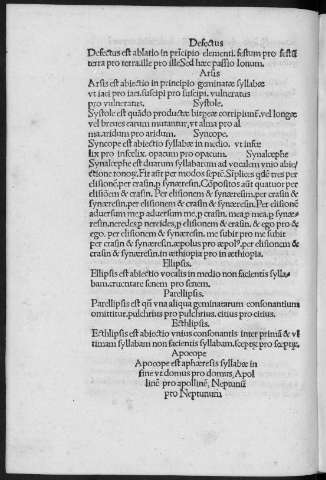 Defectus
Defectus est ablatio in prĩcipio elementi. festum pro festũ
terra pro terra. ille pro ille Sed hæc passio sonum.
Arsis
Arsis est abiectio in principio geminatæ syllabæ
vt iaci pro iaci. suscipi pro suscipi. vulneratus
pro vulneratus. Systole.
Systole est quãdo productæ corripiunẽ. vel longæ
vel breues earum mutantur, vt alma pro al
ma. aridum pro aridum. Syncope.
Syncope est abiectio syllabæ in medio. vt infœ
lix pro infœlix. opacum pro opacum. Synalœphe
Synalœphe est duarum syllabarum ad vocalem vnio abie/
ctione tonosy. Fit aũt per modos septẽ. Sĩplices qdẽ tres per
elisionẽ. per crasin, p synæresin. Cõpositos aũt quatuor per
elisiõem & crasin. Per elisionem & synæresin, per crasin &
synæresin. per elisionem & crasin & synæresin. Per elisionẽ
aduersum me p aduersum me, p crasin. mea p mea. p synæ/
resin. neredes p nereides, p elisionẽ & crasin. & ego pro &
ego. per elisionem & synæresin. me subir pro me subir
per crasin & synæresin. æpolus pro æpolꝰ. per elisionem &
crasin & synæresin. in æthiopia pro in æthiopia.
Ellipsis.
Ellipsis est abiectio vocalis in medio non facientis sylla/
bam. tructare senem pro senem.
Parellipsis.
Parellipsis est qñ vna aliqua geminatarum consonantium
omittitur. pulchrius pro pulchrius. citius pro citius.
Ecthlipsis.
Ecthlipsis est abiectio vnius consonantis inter primã & vl
timam syllabam non facientis syllabam. scept̃ pro scept̃.
Apocope
Apocope est aphæresis syllabæ in
fine vt domus pro domus, Apol
linẽ pro apollinẽ, Neptunũ
pro Neptunum